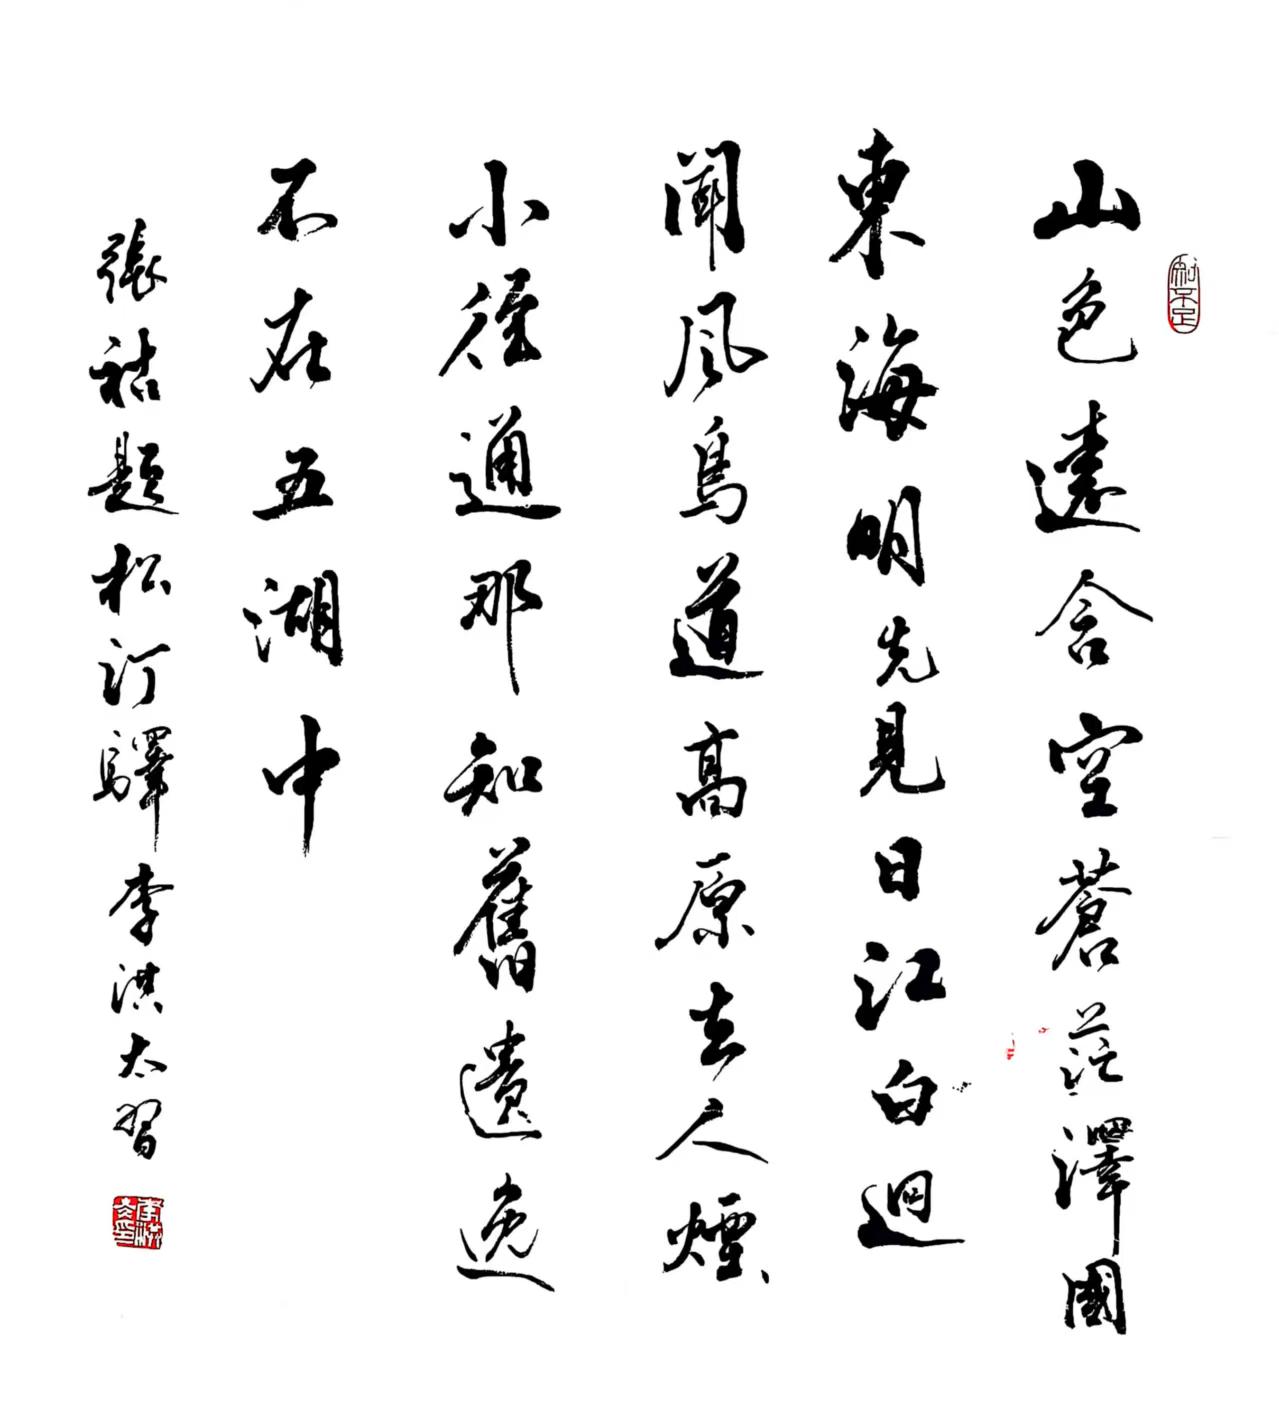 知不足
山色遠含空蒼茫澤國
東海明先見日江白迥
聞風鳥道高原去人煙
小徑通那知舊遺逸
不在五湖中
張祜題松汀驛李洪太習
李洪太印